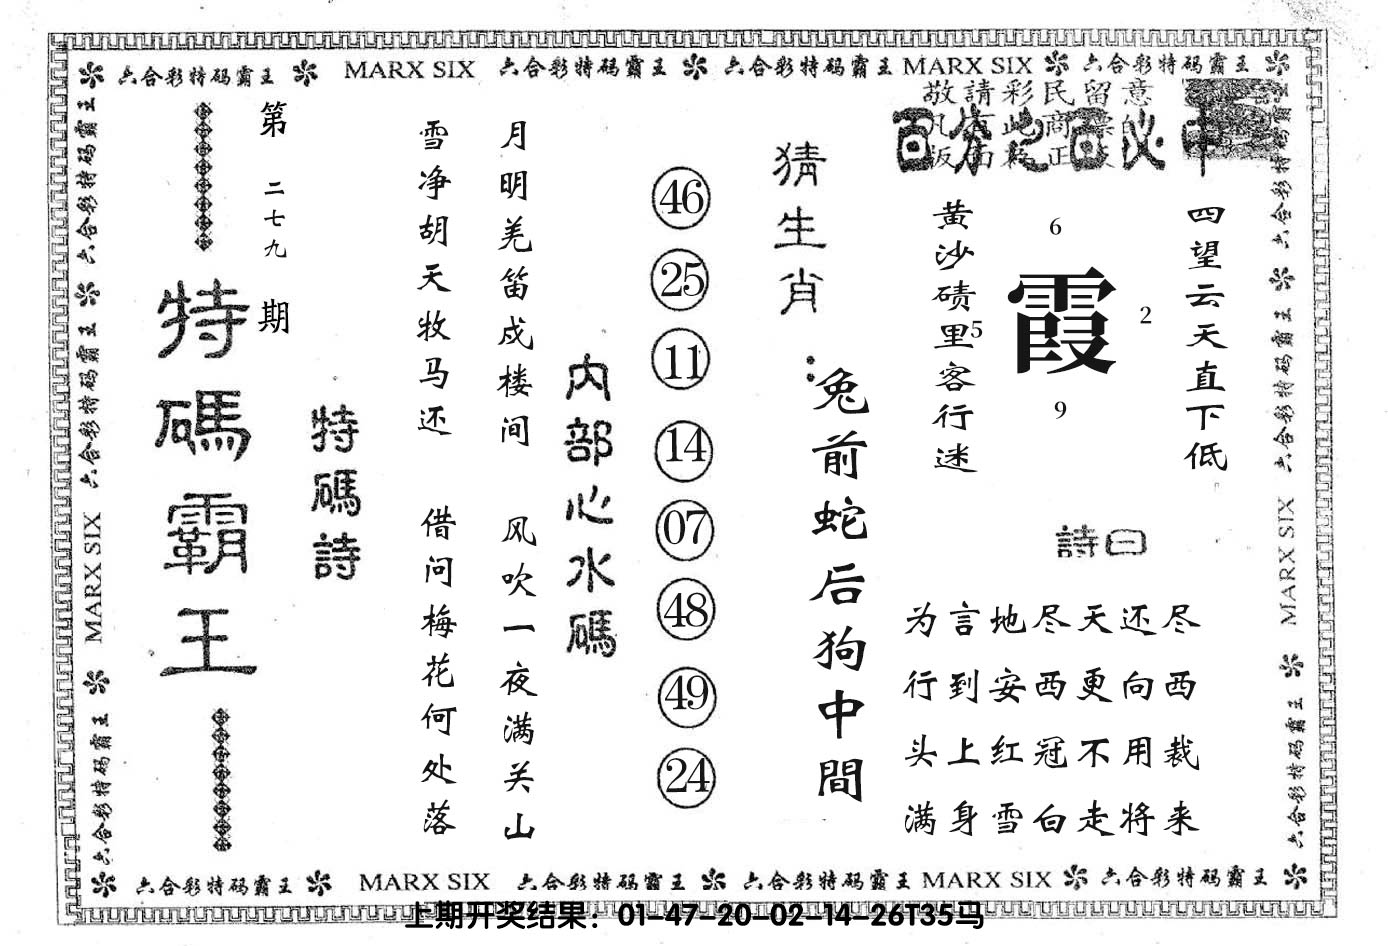 六合彩特码霸王 MARX SIX 六合彩特码霸王 六合彩特码霸王 MARX SIX 六合彩特码霸王
敬請彩民留意
百分之百必中
四望云天直下低
6
霞
2
5
9
黄沙碛里客行迷
詩曰
为言地尽天还尽
行到安西更向西
头上红冠不用裁
满身雪白走将来
猜生肖:
兔前蛇后狗中間
46
25
11
14
07
48
49
24
内部心水碼
月明羌笛戍楼间
风吹一夜满关山
雪净胡天牧马还
借问梅花何处落
特碼詩
第二七九期
特碼霸王
六合彩特码霸王 六合彩特码霸王 MARX SIX 六合彩特码霸王
六合彩特码霸王 六合彩特码霸王 MARX SIX 六合彩特码霸王
六合彩特码霸王 MARX SIX 六合彩特码霸王 六合彩特码霸王 MARX SIX 六合彩特码霸王
上期开奖结果：01-47-20-02-14-26T35马